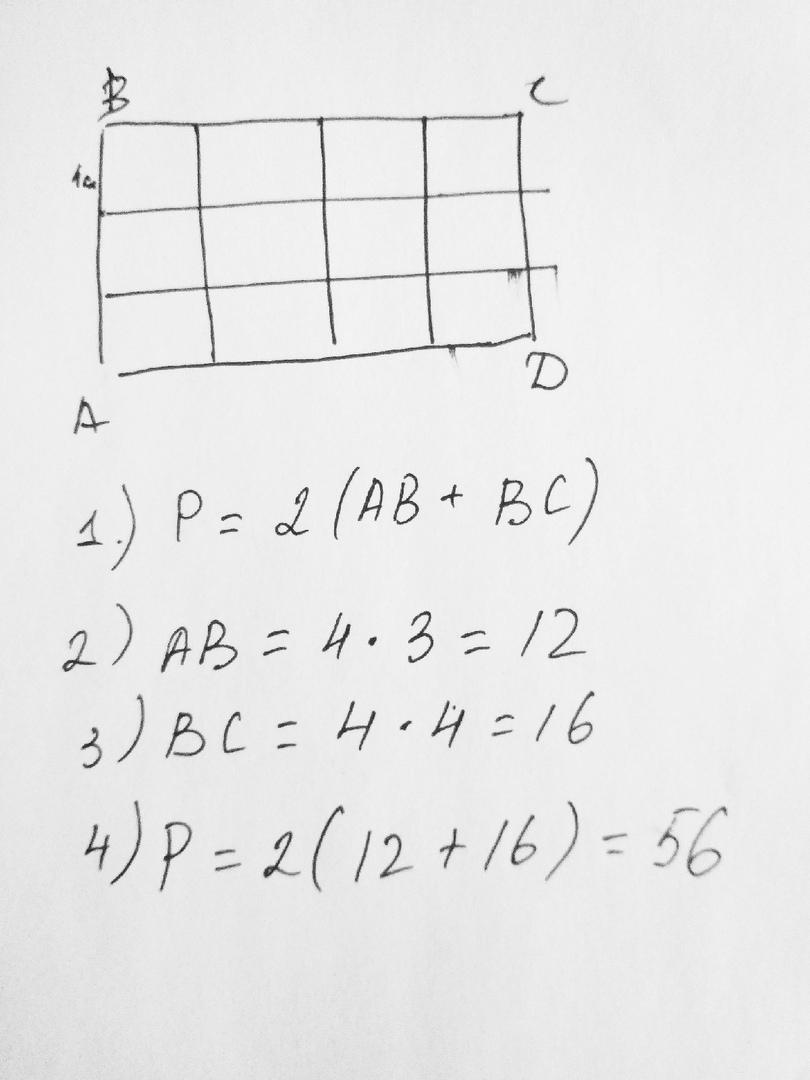 B C
A D
1.) P = 2 (AB + BC)
2) AB = 4 · 3 = 12
3) BC = 4 · 4 = 16
4) P = 2 ( 12 + 16 ) = 56